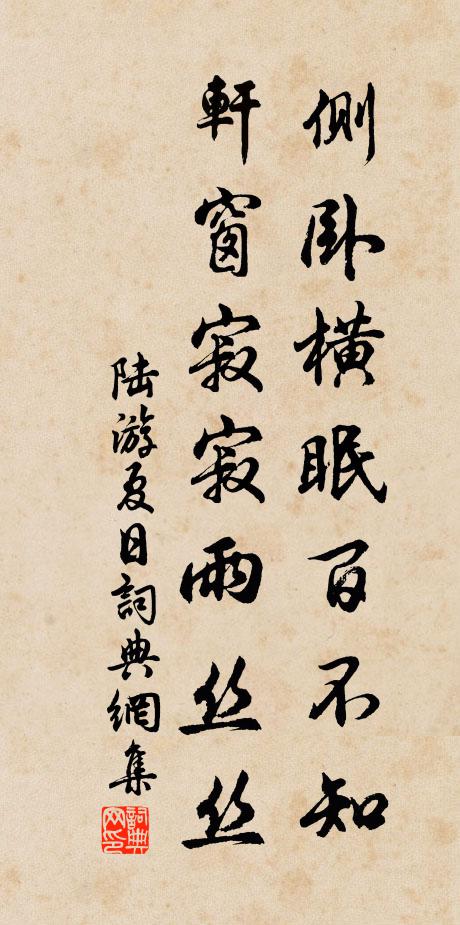 側卧橫眠百不知
軒窗寂寂雨丝丝
陆游夏日詞典網集
詞典网印